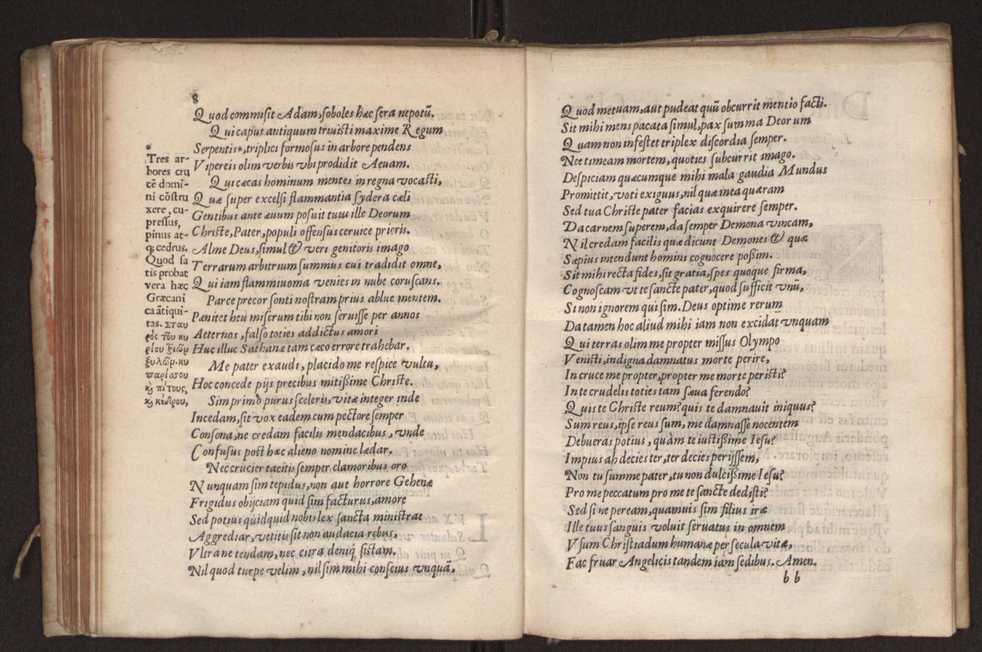 8
Quod commisit Adam, soboles hæc sera nepotũ.
Qui caput antiquum truisti maxime Regum
Serpentis*, triplici formosus in arbore pendens
Vipereis olim verbis vbi prodidit Aeuam.
Qui cæcas hominum mentes in regna vocasti,
Quæ super excelsi flammantia sydera cæli
Gentibus ante æuum posuit tuus ille Deorum
Christe, Pater, populi offensus ceruice prioris.
Alme Deus, simul & veri genitoris imago
Terrarum arbitrum summus cui tradidit omne,
Qui iam flammiuoma venies in nube coruscans.
Parce precor sonti nostram prius ablue mentem.
Pænitet heu miserum tibi non seruisse per annos
Aeternos, falso toties addictus amori
Huc illuc Sathanæ tam cæco errore trahebar.
Me pater exaudi, placido me respice vultu,
Hoc concede pijs precibus mitissime Christe.
Sim primò purus sceleris, vitæ integer inde
Incedam, sit vox eadem cum pectore semper
Consona, ne credam facilis mendacibus, vnde
Confusus post hæc alieno nomine lædar.
Nec crucier tacitis semper clamoribus oro
Nunquam sim tepidus, non aut horrore Gehenæ
Frigidus obijciam quid sim facturus, amore
Sed potius quidquid nobis lex sancta ministrat
Aggrediar, vetitis sit non audacia rebus.
Vltra ne tendam, nec citra deniq; sistam.
Nil quod turpe velim, nil sim mihi conscius vnquã,
*
Tres ar-
bores cru
cẽ domi-
ni cõstru
xere, cu-
pressus,
pinus at-
q; cedrus.
Quod sa
tis probat
vera hæc
Græcani
ca ãtiqui-
tas. σταυ
ρὸς τοῦ κυ
ρίου τριῶν
ξυλῶν. κυ
παρίσσου
κ̀ πίτυος,
κ̀ κέδρου,
Quod metuam, aut pudeat quũ obcurrit mentio facti.
Sit mihi mens pacata simul, pax summa Deorum
Quam non infestet triplex discordia semper.
Nec timeam mortem, quoties subcurrit imago.
Despiciam quæcumque mihi mala gaudia Mundus
Promittit, voti exiguus, nil quæ inea quæram
Sed tua Christe pater facias exquirere semper.
Da carnem superem, da semper Demona vincam,
Nil credam facilis quæ dicunt Demones & quæ
Sæpius intendunt hominis cognoscere possim.
Sit mihi recta fides, sit gratia, spes quoque firma,
Cognoscam vt te sancte pater, quod sufficit vnũ,
Si non ignorem qui sim. Deus optime rerum
Da tamen hoc aliud mihi iam non excidat vnquam
Qui terras olim me propter missus Olympo
Venisti, indigna damnatus morte perire,
In cruce me propter, propter me morte peristi?
In te crudelis toties tam sæua ferendo?
Quis te Christe reum? quis te damnauit iniquus?
Sum reus, ipse reus sum, me damnasse nocentem
Debueras potius, quàm te iustissime Iesu?
Impius ah decies ter, ter decies perijssem,
Non tu summe pater, tu non dulcissime Iesu?
Pro me peccatum pro me te sancte dedisti?
Sed si ne peream, quamuis sim filius iræ
Ille tuus sanguis voluit seruatus in omnem
Vsum Christiadum humanæ per secula vitæ,
Fac fruar Angelicis tandem iam sedibus. Amen.
b b